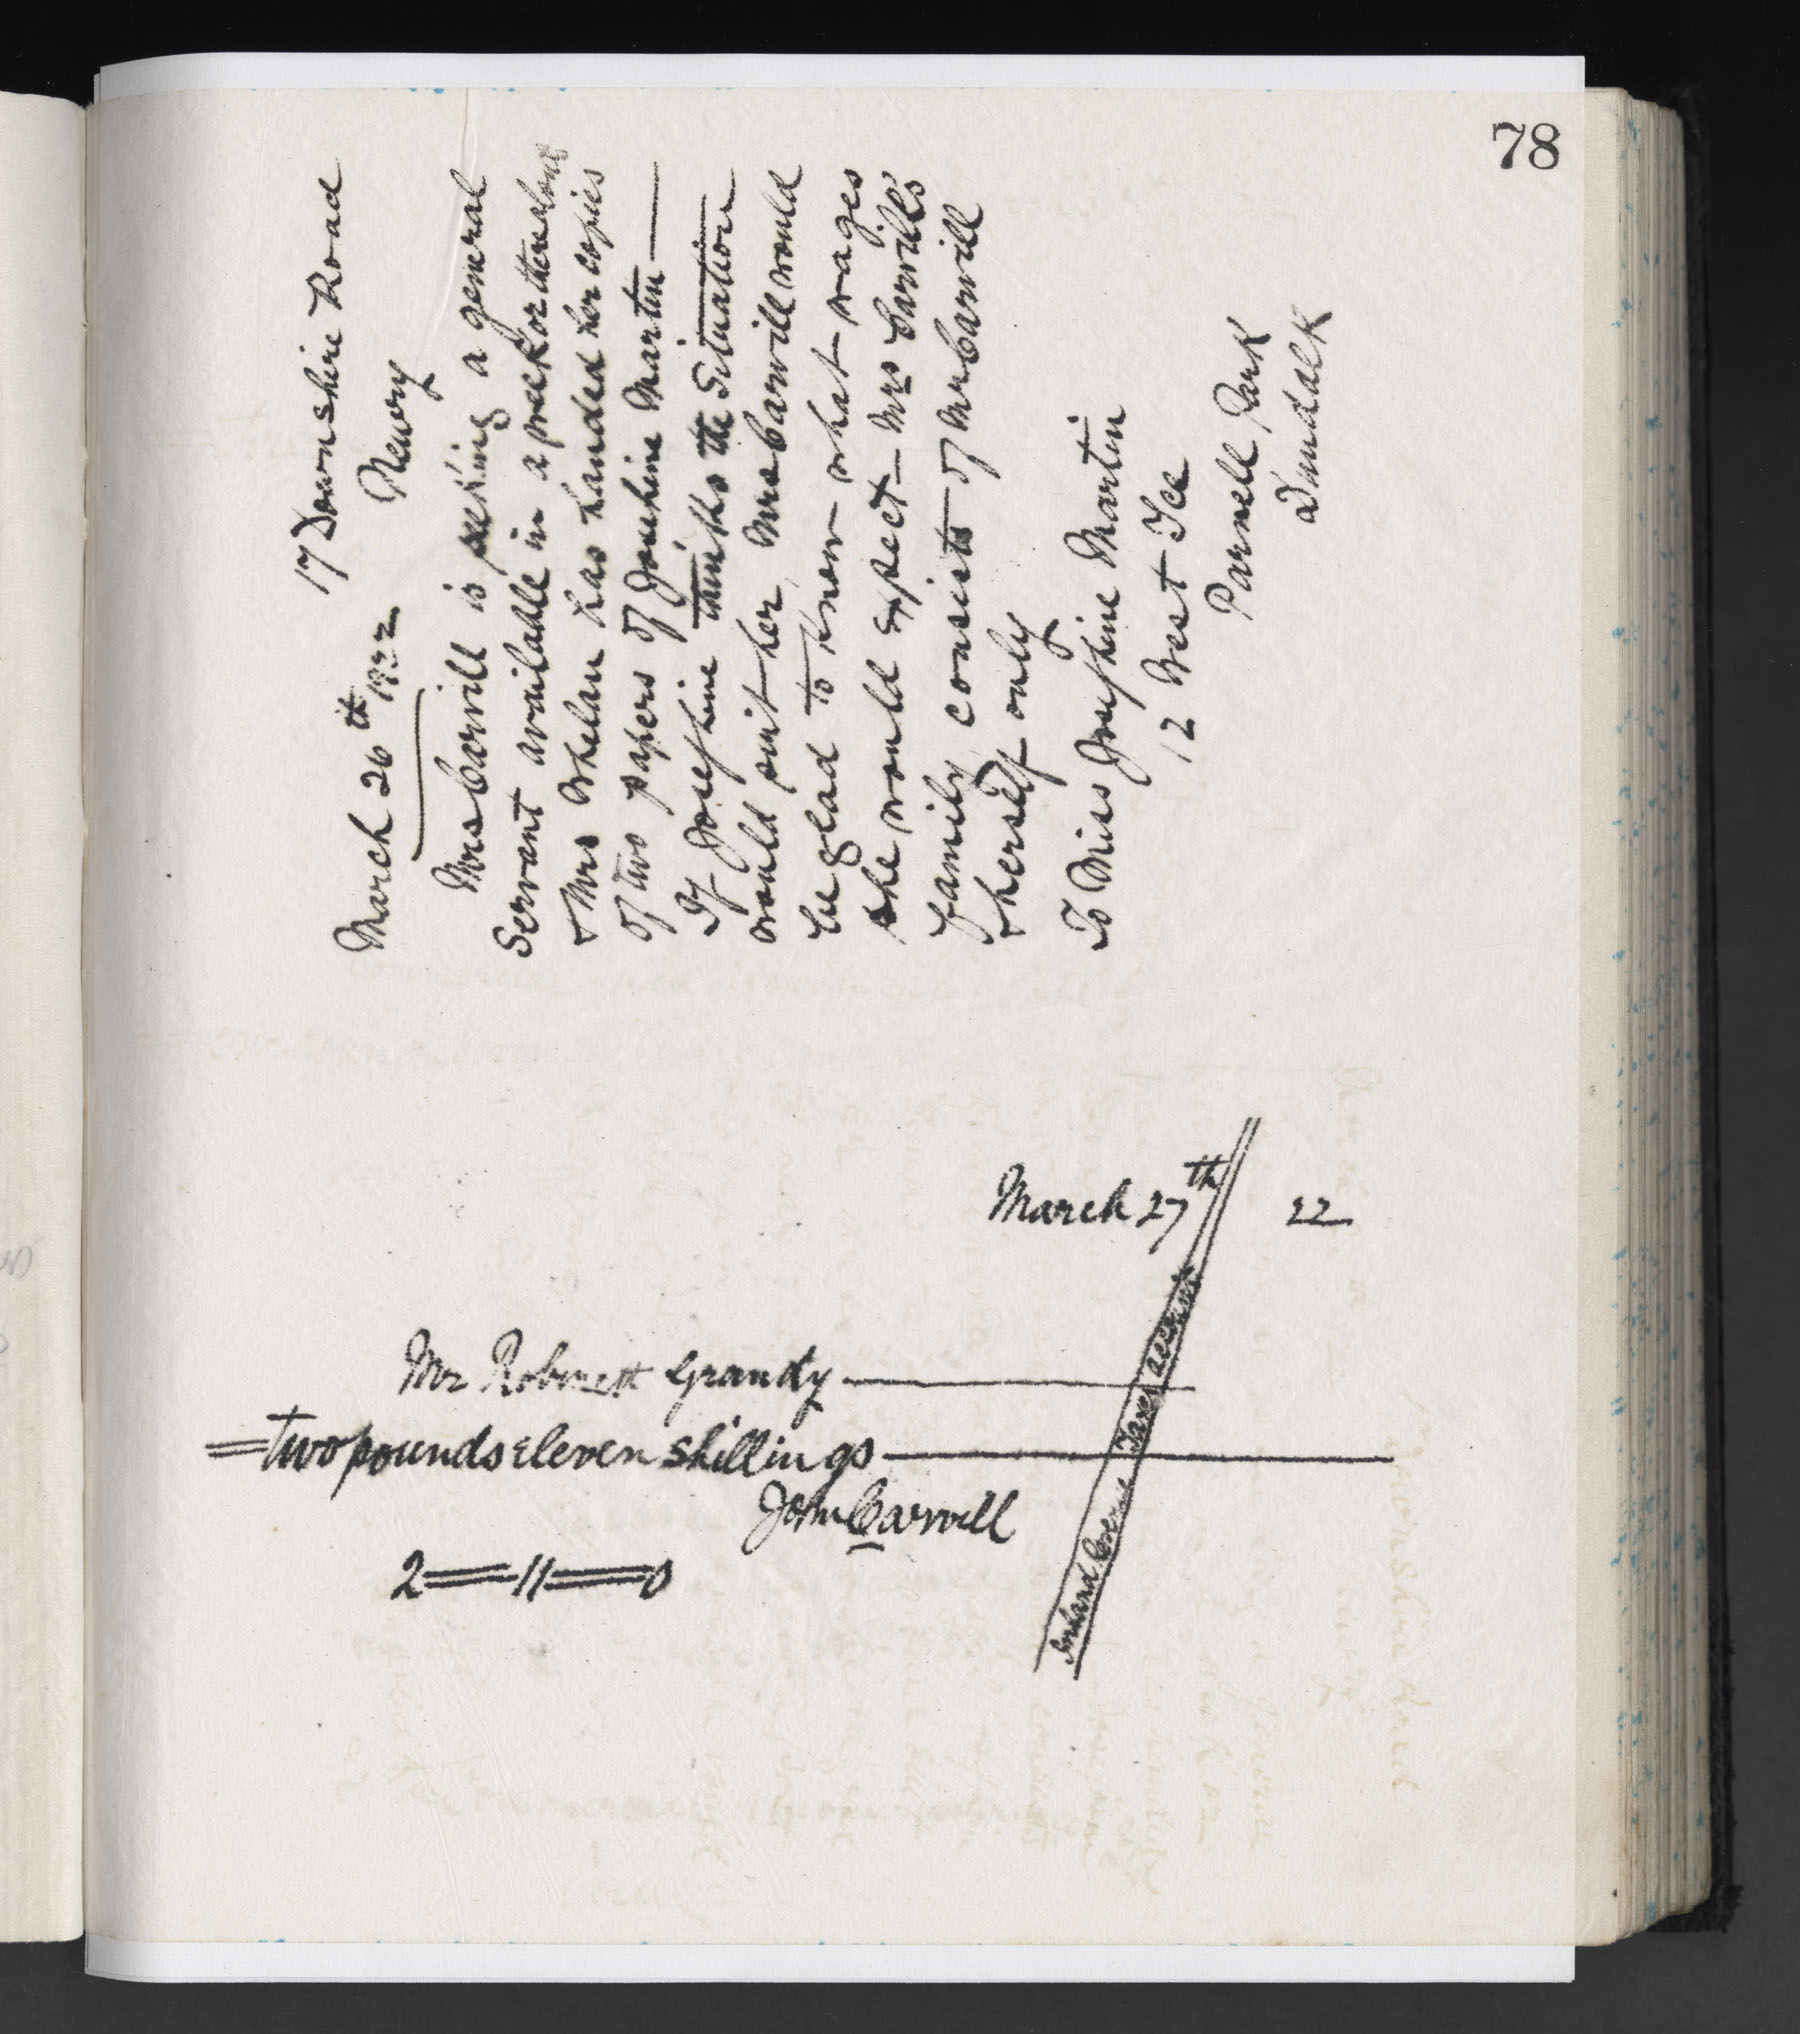 78
17 Downshire Road
Newry
March 26th 1922
Mrs Carvill is seeking a general
Servant available in a week or thereabout
& Mrs Whelan has handed her copies
of two papers of Josephine Martin
If Josephine thinks the Situation
would suit her, Mrs Carvill would
be glad to know what wages
she would expect - Mrs Carvill's
family consists of Mr Carvill
& herself only
To Miss Josephine Martin
12 West Tce
Parnell Park
Dundalk
March 27th 22
Mr Robinett Grandy
two pounds eleven shillings
John Carvill
2 = 11 = 0
Inland Revenue Taxes account